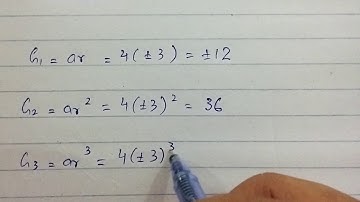 G₁ = ar = 4(±3) = ±12
G₂ = ar² = 4(±3)² = 36
G₃ = ar³ = 4(±3)³